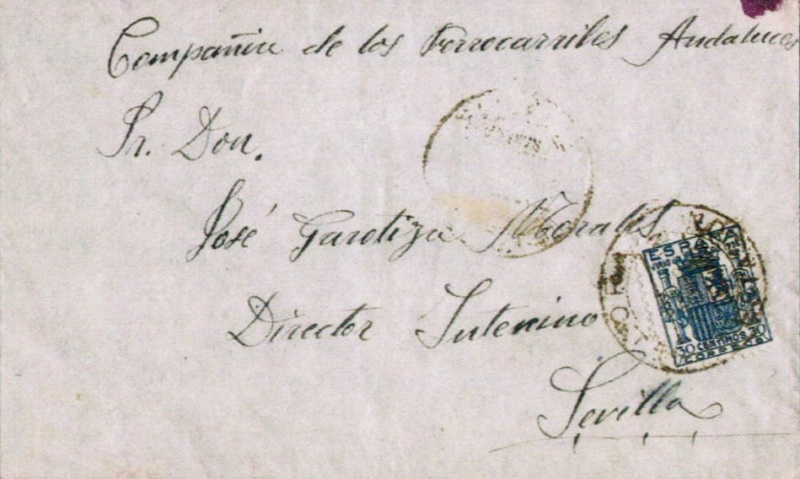 Compañia de los Ferrocarriles Andaluces
Sr. Don.
José Garotiza Morales
Director Intenino
Sevilla
ESPAÑA
30 CENTIMOS 30
CORREOS